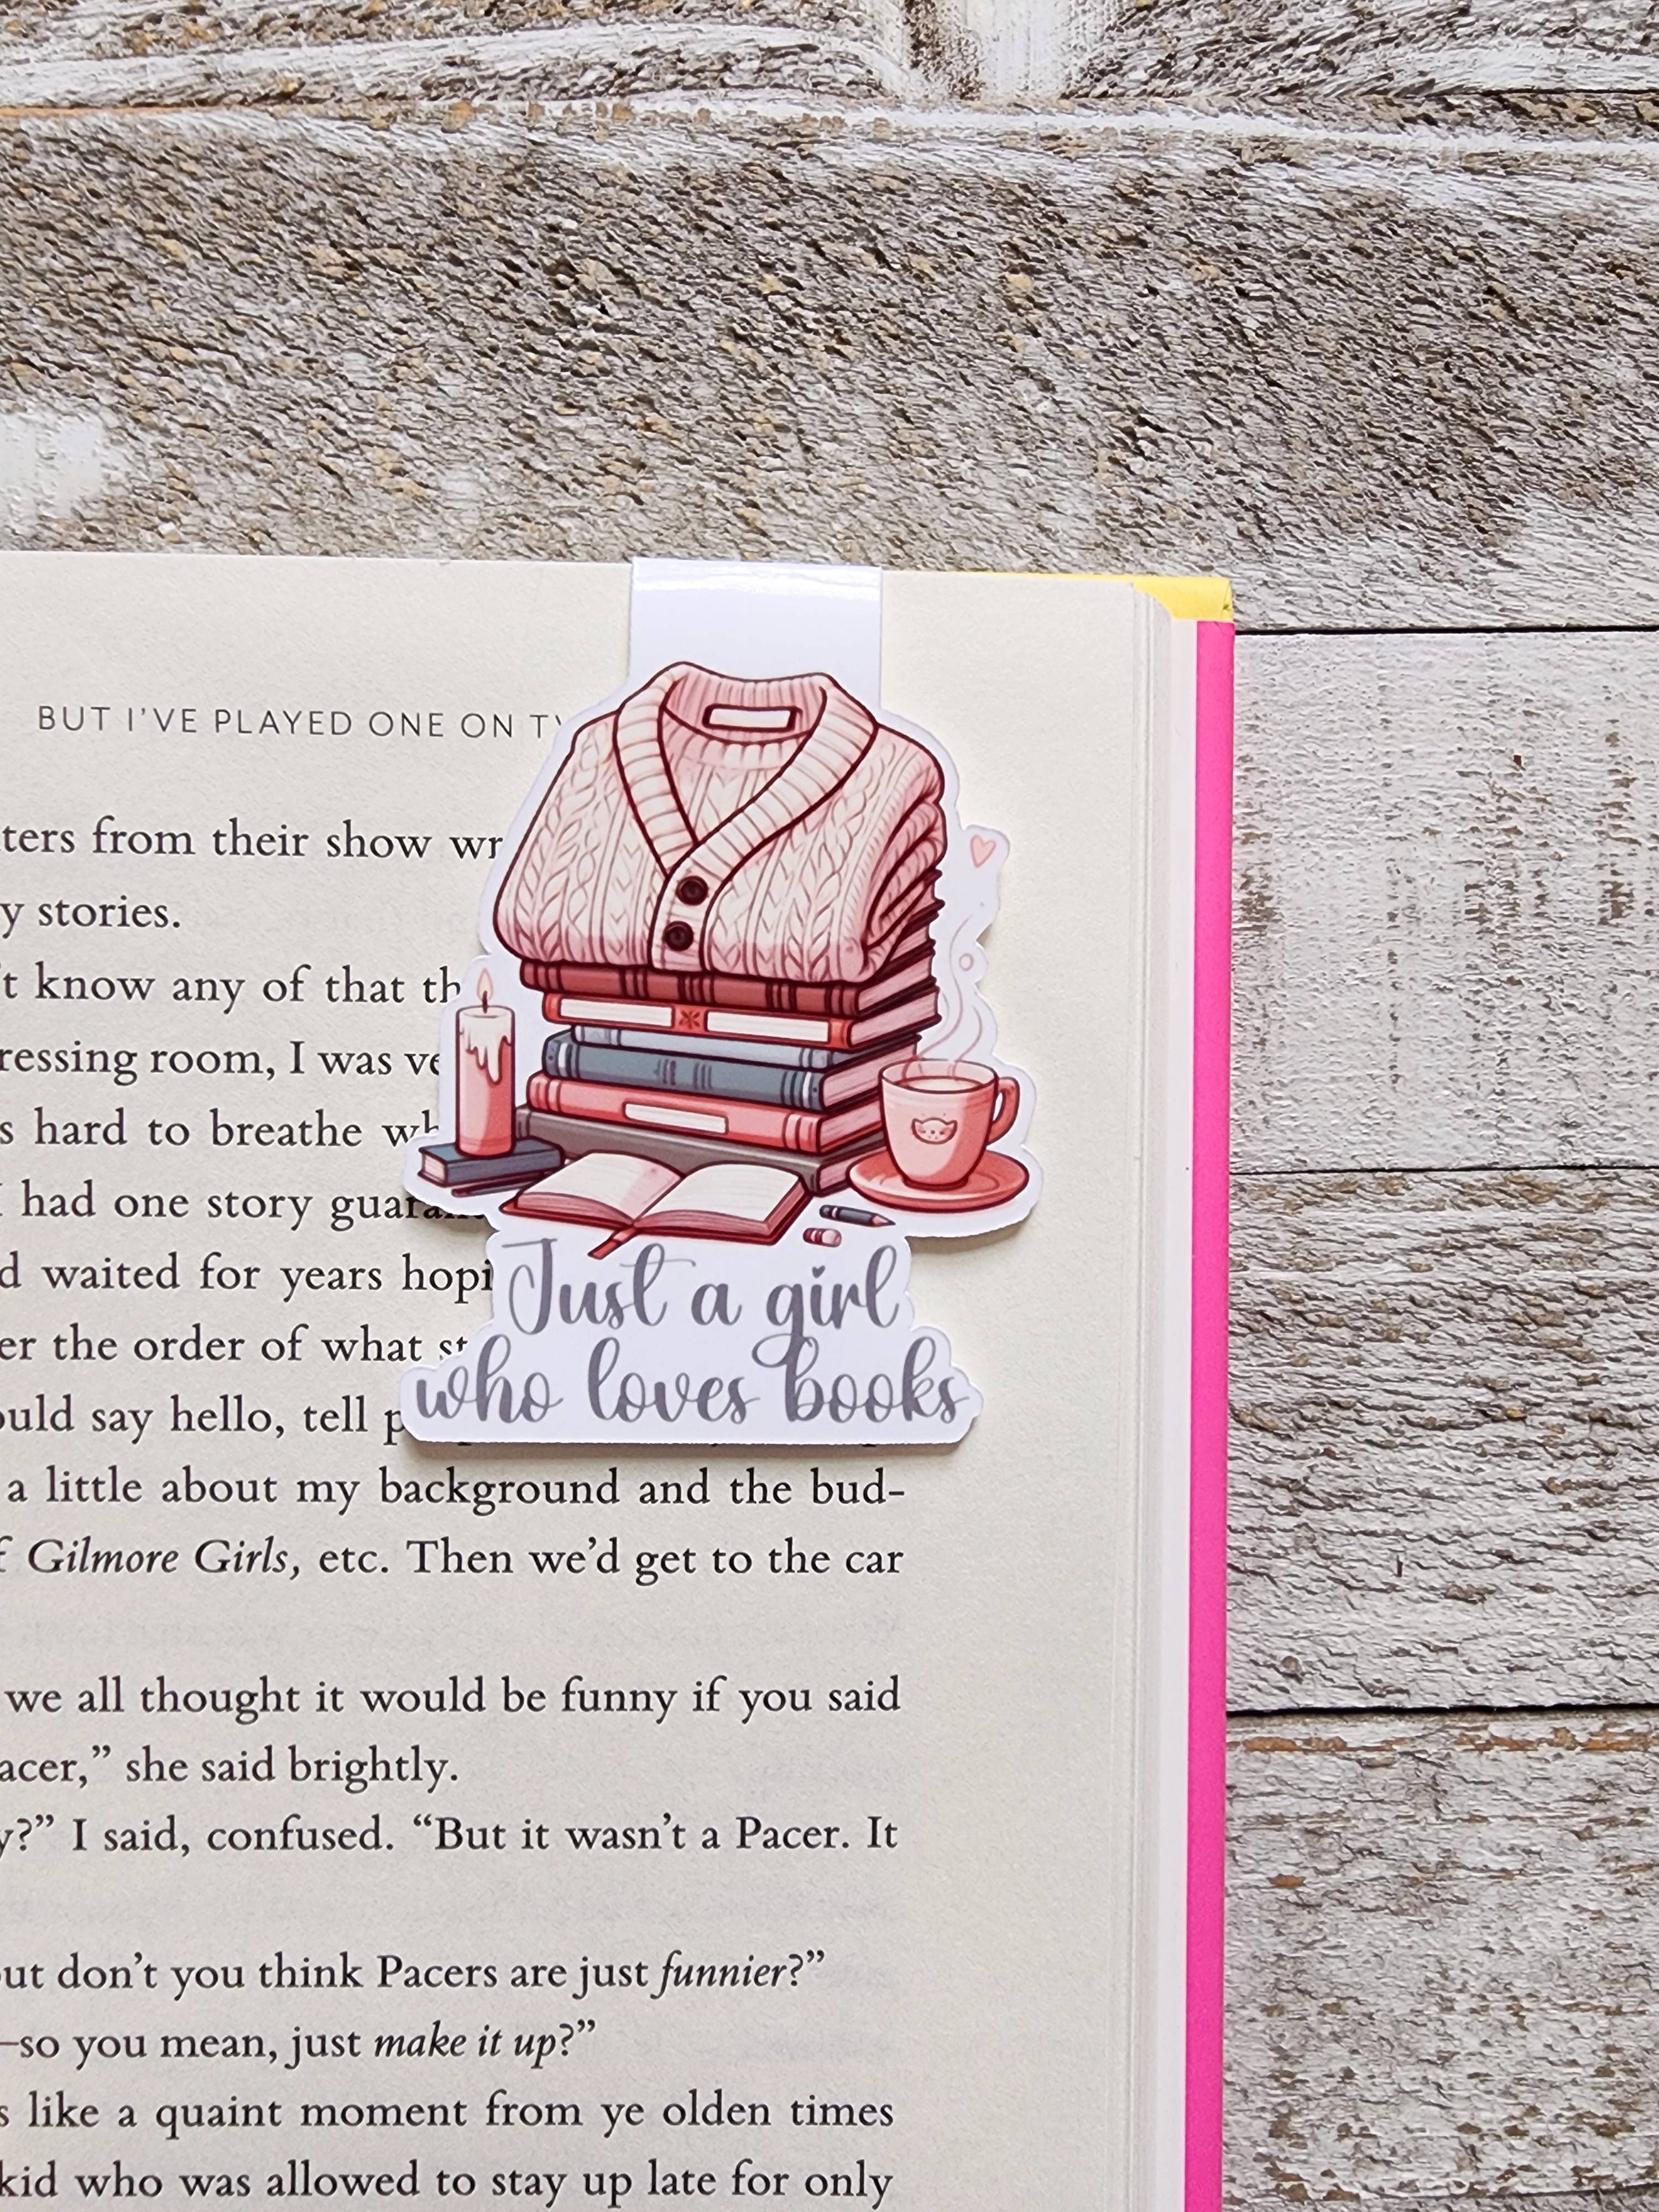 BUT I'VE PLAYED ONE ON
from their show
stories.
know any of that
room, I was
hard to breathe
had one story
waited for years
the order of what
say hello, tell
a little about my background and the bud-
Gilmore Girls, etc. Then we'd get to the car
we all thought it would be funny if you said
she said brightly.
I said, confused. “But it wasn't a Pacer. It
don't you think Pacers are just funnier?”
—so you mean, just make it up?”
like a quaint moment from ye olden times
kid who was allowed to stay up late for only
Just a girl
who loves books